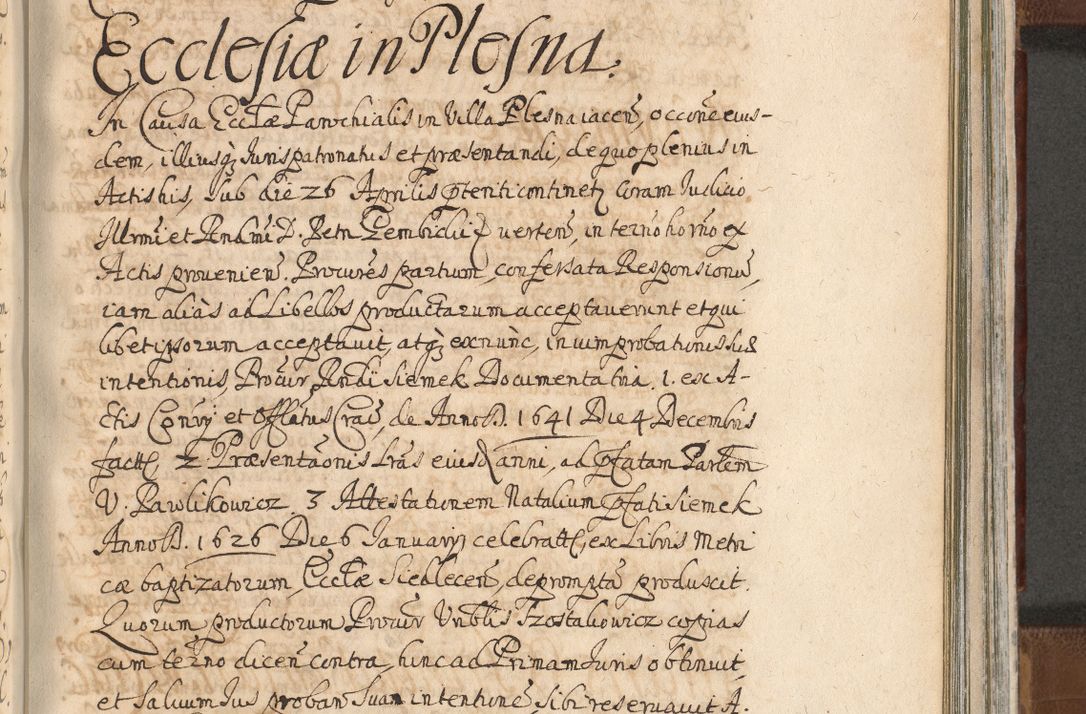 Ecclesiæ in Plesna.
In Causa Eccłæ Parochialis in Villa Plesna iaceñ, occoñe eius-
dem, illiusq; Jurispatronatus et præsentandi, de quo plenius in
Actis his, sub die 26 Aprilis ptenti continetr Coram Judicio
Illrmi et Rndmi D. Petri Gembicki verteñ, in terño horño ex
Actis provenieñ. Procures partium, confersata Responsionũ,
iam aliàs ad Libellos productarum acceptaverunt et qui
libet ipsorum acceptauit, atq; exnùnc, in vim probationis suæ
intentionis, Procur Rndi Siemek Documenta tria. 1. ex A-
ctis Consrÿ et Offlatus Crac, de Anno D. 1641 Die 4 Decembris
factæ, 2. Præsentaonis Lras eiusd anni, ad pfatam Partem
V. Pawlikowicz. 3 Attestationem Natalium pfati Siemek
Anno D. 1626 Die 6 Januarij celebratæ, ex Libris Metri
cæ baptizatorum, Ecctæ Siedleceñ, deprompta produxit.
Quorum productorum Procur Vnblis Trzostakowicz copias
cum terno diceñ contra, hinc ad Primam Juris obtinuit,
et saluum Jus proban suam intentionẽ, sibi reseruauit A.